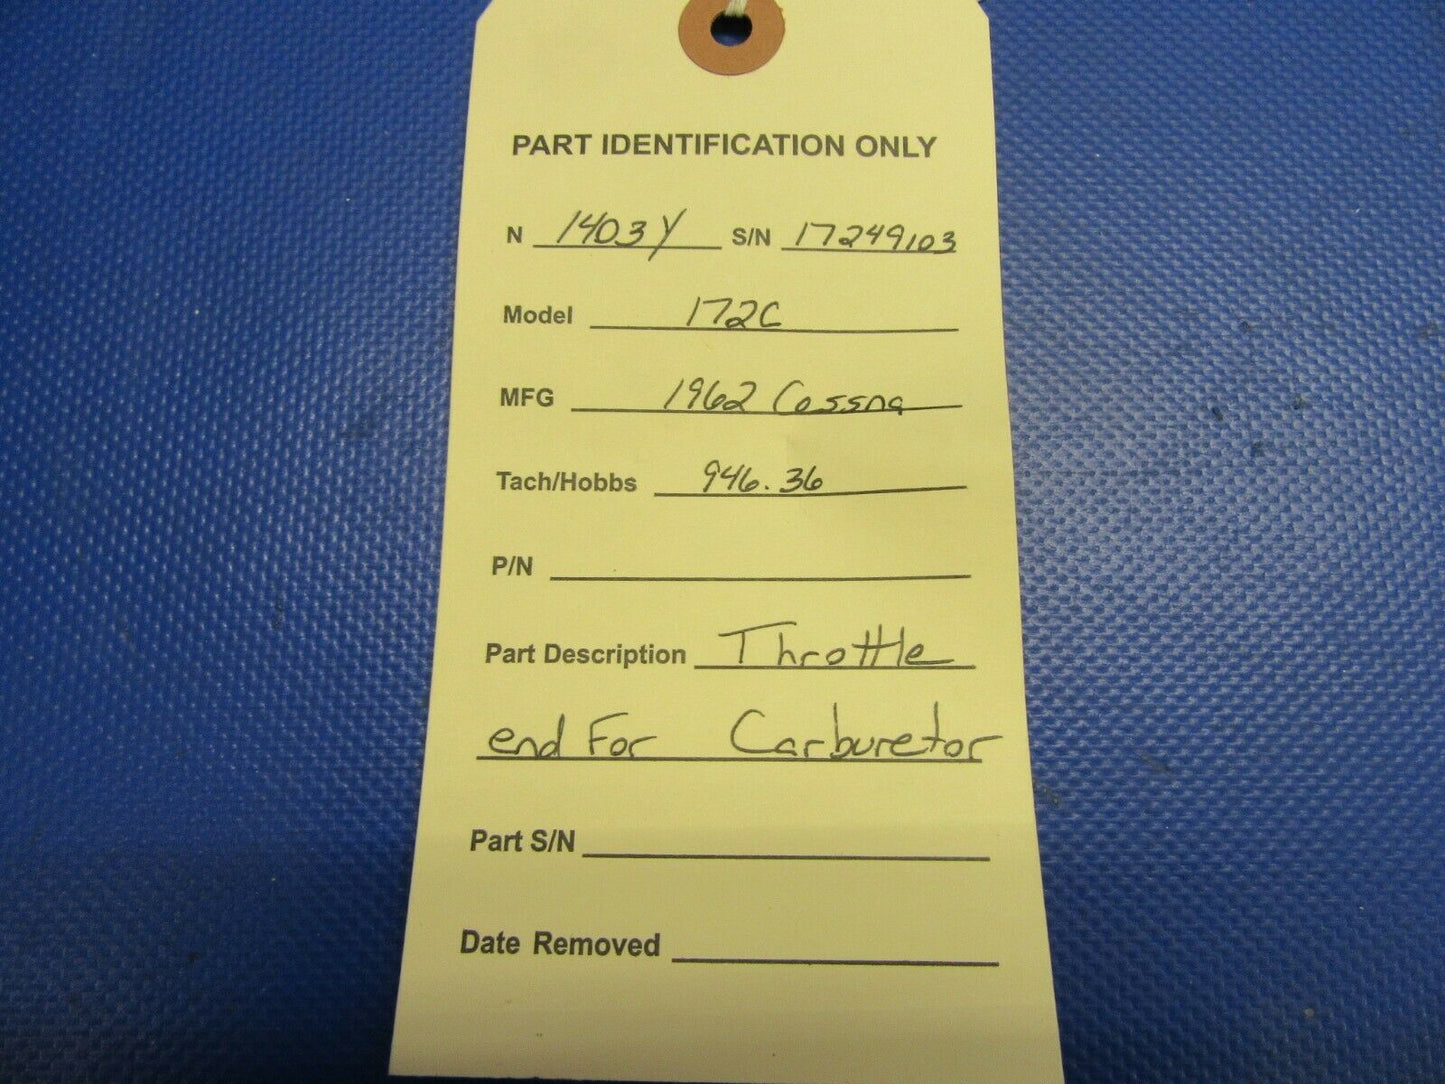 PART IDENTIFICATION ONLY
N 1403Y S/N 17249103
Model 172C
MFG 1962 Cessna
Tach/Hobbs 946.36
P/N
Part Description Throttle
end For Carburetor
Part S/N
Date Removed